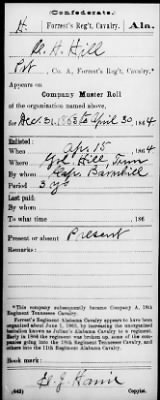 (Confederate.)
H. Forrest's Reg't, Cavalry. Ala.
A. Hill
Pvt, Co. A, Forrest's Reg't, Cavalry.*
Appears on
Company Muster Roll
of the organization named above,
for Dec. 31, 1863 to April 30, 1864
Enlisted:
When Apr. 15, 1864
Where Hill, Tenn
By whom Capt. Barnhill
Period 3 yrs
Last paid:
By whom
To what time , 186
Present or absent Present
Remarks:
*This company subsequently became Company A, 18th
Regiment Tennessee Cavalry.
Forrest's Regiment Alabama Cavalry appears to have
been organized about June 1, 1863, by increasing the
organization known as Julian's Alabama Cavalry to a regiment.
Early in 1865 the regiment was broken up, some of the companies
going into the 18th Regiment Tennessee Cavalry, and
others into the 11th Regiment Alabama Cavalry.
Book mark:
(642) Copyist.